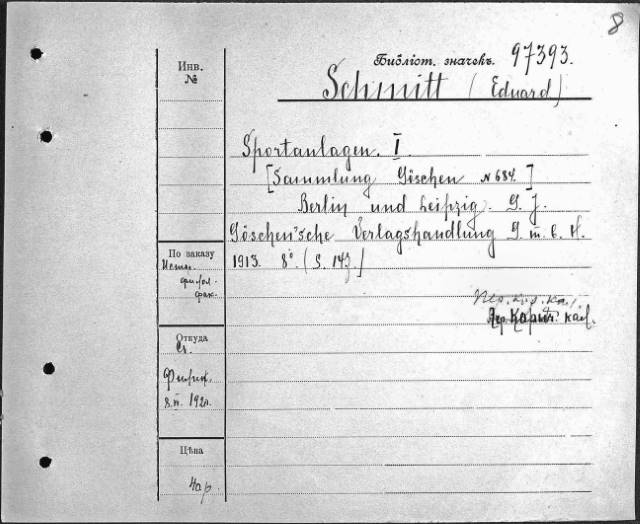 8
Библіот. значекъ. 97393.
Schmitt (Eduard)
Инв.
№
Sportanlagen. I
[Sammlung Göschen № 684.]
Berlin und Leipzig. G. J.
Göschen'sche Verlagshandlung G. m. b. H.
1913. 8° (S. 143.]
По заказу
фак.
Откуда
Цѣна